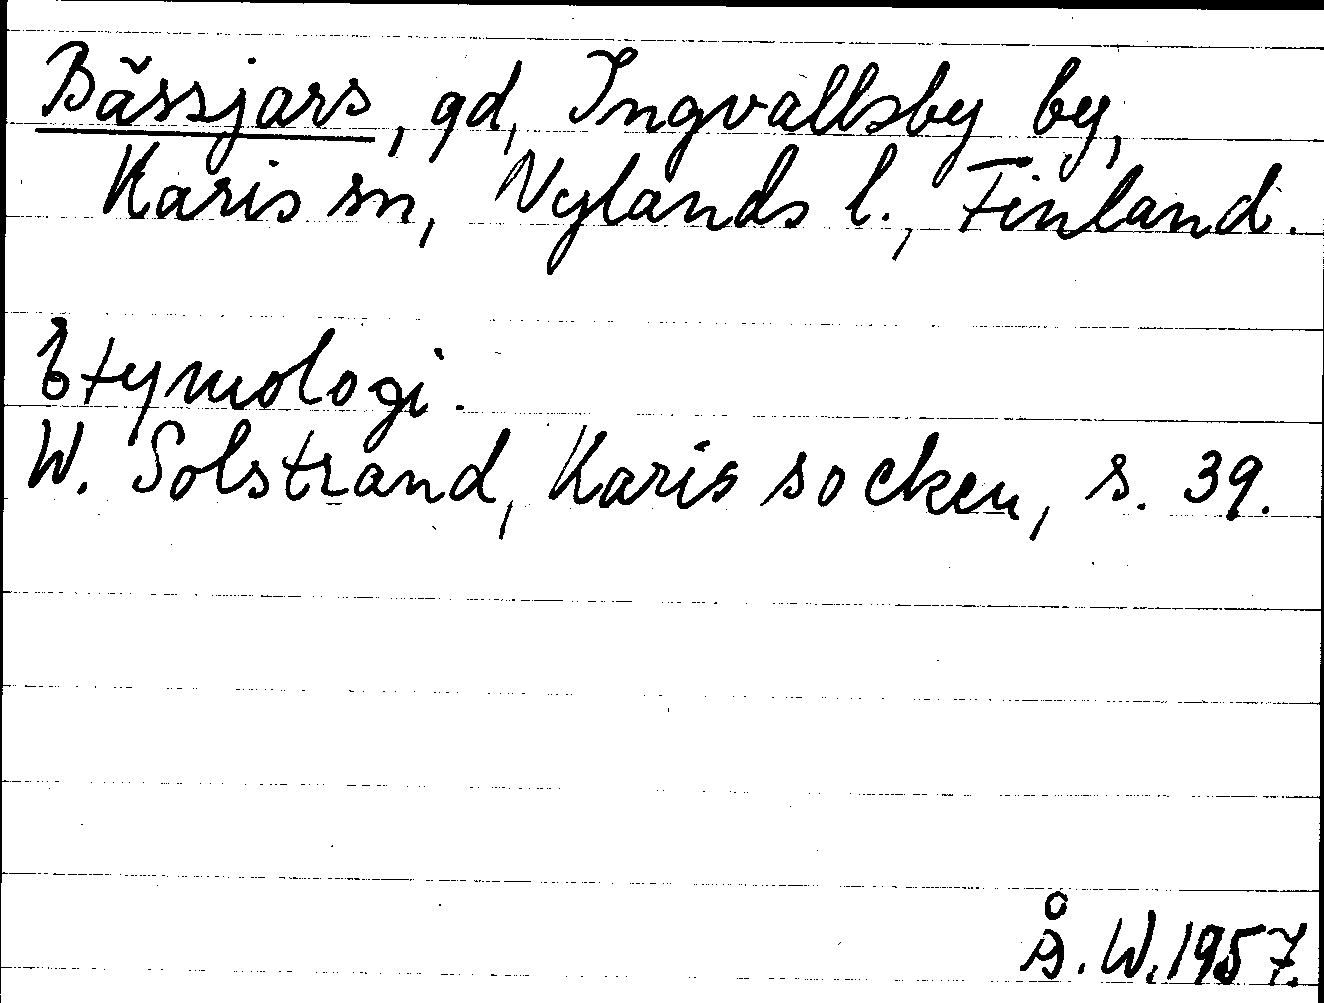 Bässjars, gd, Ingvallsby by,
Karis sn, Nylands l., Finland.
Etymologi.
W. Solstrand, Karis socken, s. 39.
Å. W. 1957.